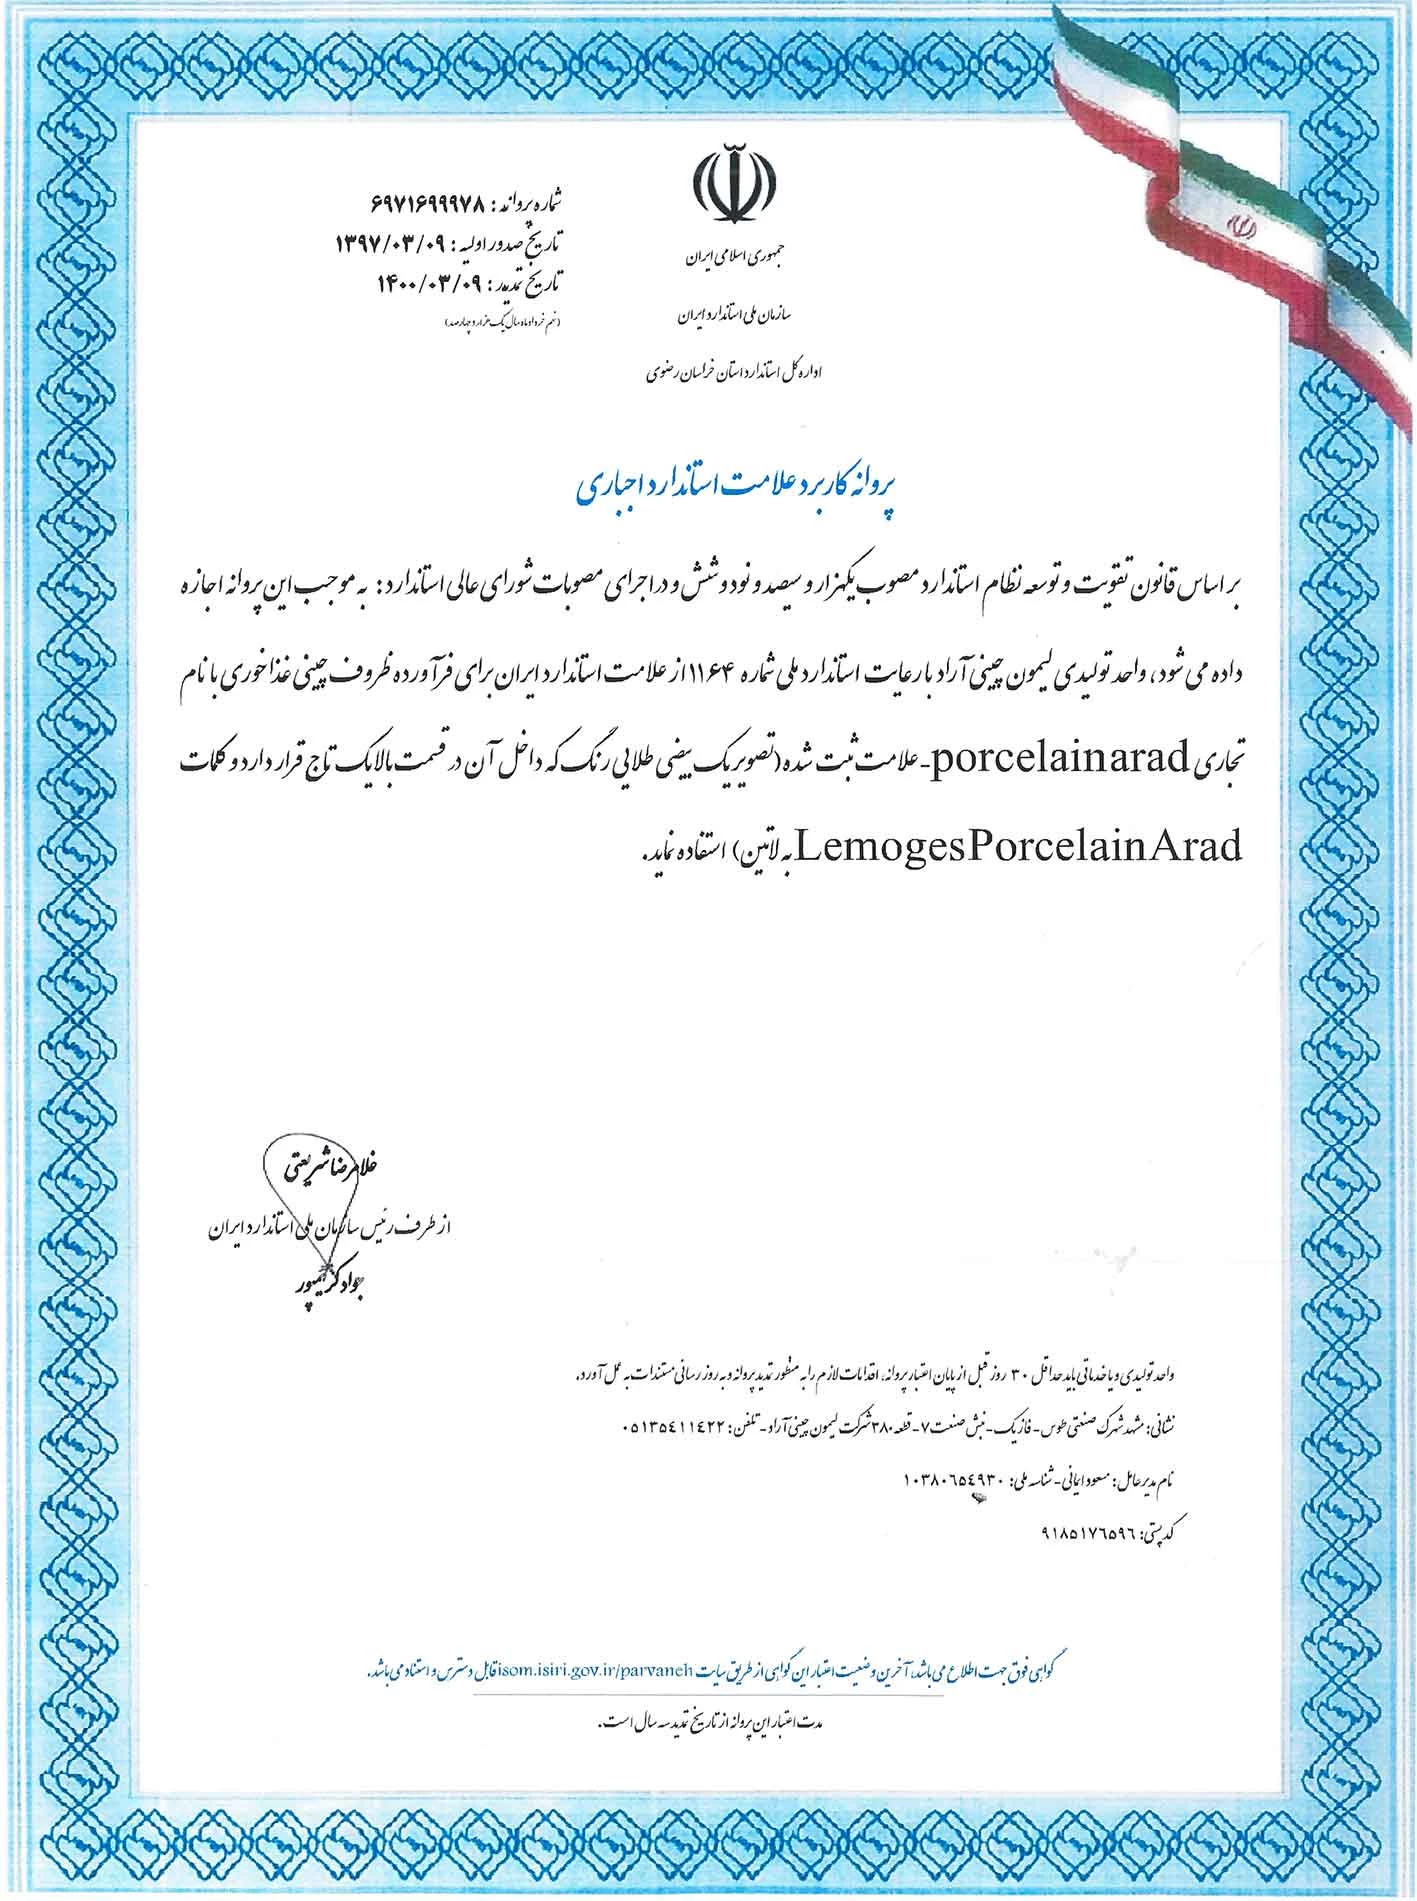 جمهوری اسلامی ایران
سازمان ملی استاندارد ایران
اداره کل استاندارد استان خراسان رضوی
شماره پروانه : ۶۹۷۱۶۹۹۹۷۸
تاریخ صدور اولیه : ۱۳۹۷/۰۳/۰۹
تاریخ تمدید : ۱۴۰۰/۰۳/۰۹
(نهم خرداد ماه سال یک هزار و چهارصد)
پروانه کاربرد علامت استاندارد اجباری
بر اساس قانون تقویت و توسعه نظام استاندارد مصوب یکهزار و سیصد و نود و شش و در اجرای مصوبات شورای عالی استاندارد : به موجب این پروانه اجازه
داده می شود ، واحد تولیدی لیمون چینی آراد با رعایت استاندارد ملی شماره ۱۱۶۴ از علامت استاندارد ایران برای فرآورده ظروف چینی غذاخوری با نام
تجاری porcelain arad-علامت ثبت شده (تصویر یک بیضی طلایی رنگ که داخل آن در قسمت بالا یک تاج قرار دارد و کلمات
Lemoges Porcelain Arad به لاتین) استفاده نماید.
غلامرضا شریعتی
از طرف رئیس سازمان ملی استاندارد ایران
جواد کریمپور
واحد تولیدی و یا خدماتی باید حداقل ۳۰ روز قبل از پایان اعتبار پروانه، اقدامات لازم را به منظور تمدید پروانه و به روز رسانی مستندات به عمل آورد.
نشانی: مشهد شهرک صنعتی طوس - فاز یک - نبش صنعت ۷ - قطعه ۳۸۰ شرکت لیمون چینی آراد - تلفن: ۰۵۱۳۵۴۱۱۴۲۲
نام مدیر عامل : مسعود ایمانی - شناسه ملی: ۱۰۳۸۰۶۵۴۹۳۰
کد پستی: ۹۱۸۵۱۷۶۵۹۶
گواهی فوق جهت اطلاع می باشد، آخرین وضعیت اعتبار این گواهی از طریق سایت isom.isiri.gov.ir/parvaneh قابل دسترس و استناد می باشد.
مدت اعتبار این پروانه از تاریخ تمدید سه سال است.